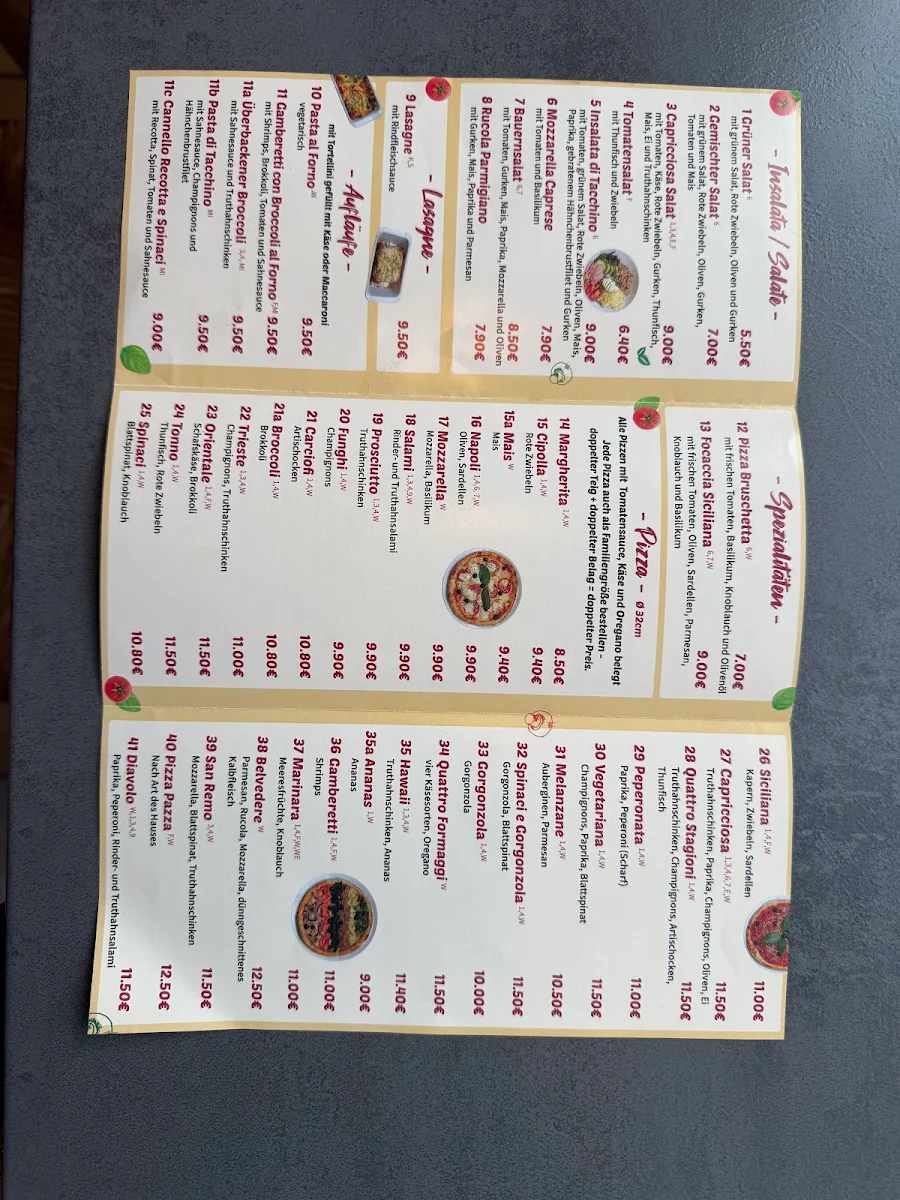 - Insalata / Salate -
1 Grüner Salat 6 5.50€
mit grünem Salat, Rote Zwiebeln, Oliven und Gurken
2 Gemischter Salat 6 7.00€
mit grünem Salat, Rote Zwiebeln, Oliven, Gurken,
Tomaten und Mais
3 Capricciosa Salat 1,3,4,E,F 9.00€
mit Tomaten, Käse, Rote Zwiebeln, Gurken, Thunfisch,
Mais, Ei und Truthahnschinken
4 Tomatensalat F 6.40€
mit Thunfisch und Zwiebeln
5 Insalata di Tacchino 6 9.00€
mit Tomaten, grünem Salat, Rote Zwiebeln, Oliven, Mais,
Paprika, gebratenem Hähnchenbrustfilet und Gurken
6 Mozzarella Caprese 7.90€
mit Tomaten und Basilikum
7 Bauernsalat 6,7 8.50€
mit Tomaten, Gurken, Mais, Paprika, Mozzarella und Oliven
8 Rucola Parmigiano 7.90€
mit Gurken, Mais, Paprika und Parmesan
- Lasagne -
9 Lasagne K,S 9.50€
mit Rindfleischsauce
- Aufläufe -
mit Tortellini gefüllt mit Käse oder Maccaroni
10 Pasta al Forno W 9.50€
vegetarisch
11 Gamberetti con Broccoli al Forno F,MI 9.50€
mit Shrimps, Brokkoli, Tomaten und Sahnesauce
11a Überbackener Broccoli 3,4, MI 9.50€
mit Sahnesauce und Truthahnschinken
11b Pasta di Tacchino MI 9.50€
mit Sahnesauce, Champignons und
Hähnchenbrustfilet
11c Cannello Recotta e Spinaci MI 9.00€
mit Recotta, Spinat, Tomaten und Sahnesauce
- Spezialitäten -
12 Pizza Bruschetta 6,W 7.00€
mit frischen Tomaten, Basilikum, Knoblauch und Olivenöl
13 Focaccia Siciliana 6,7,W 9.00€
mit frischen Tomaten, Oliven, Sardellen, Parmesan,
Knoblauch und Basilikum
- Pizza - Ø 32cm
Alle Pizzen mit Tomatensauce, Käse und Oregano belegt
Jede Pizza auch als Familiengröße bestellen -
doppelter Teig + doppelter Belag = doppelter Preis.
14 Margherita 1,4,W 8.50€
15 Cipolla 1,4,W 9.40€
Rote Zwiebeln
15a Mais W 9.40€
Mais
16 Napoli 1,4,6, 7,W 9.90€
Oliven, Sardellen
17 Mozzarella W 9.90€
Mozzarella, Basilikum
18 Salami 1,3,4,9,W 9.90€
Rinder- und Truthahnsalami
19 Prosciutto 1,3,4,W 9.90€
Truthahnschinken
20 Funghi 1,4,W 9.90€
Champignons
21 Carciofi 1,4,W 10.80€
Artischocken
21a Broccoli 1,4,W 10.80€
Brokkoli
22 Trieste 1,3,4,W 11.00€
Champignons, Truthahnschinken
23 Orientale 1,4,F,W 11.50€
Schafskäse, Brokkoli
24 Tonno 1,4,W 11.50€
Thunfisch, Rote Zwiebeln
25 Spinaci 1,4,W 10.80€
Blattspinat, Knoblauch
26 Siciliana 1,4,F,W 11.00€
Kapern, Zwiebeln, Sardellen
27 Capricciosa 1,3,4,6,7,E,W 11.50€
Truthahnschinken, Paprika, Champignons, Oliven, Ei
28 Quattro Stagioni 1,4,W 11.50€
Truthahnschinken, Champignons, Artischocken,
Thunfisch
29 Peperonata 1,4,W 11.00€
Paprika, Peperoni (Scharf)
30 Vegetariana 1,4,W 11.50€
Champignons, Paprika, Blattspinat
31 Melanzane 1,4,W 10.50€
Auberginen, Parmesan
32 Spinaci e Gorgonzola 1,4,W 11.50€
Gorgonzola, Blattspinat
33 Gorgonzola 1,4,W 10.00€
Gorgonzola
34 Quattro Formaggi W 11.50€
vier Käsesorten, Oregano
35 Hawaii 1,3,4,W 11.40€
Truthahnschinken, Ananas
35a Ananas 1,W 9.00€
Ananas
36 Gamberetti 1,4,F,W 11.00€
Shrimps
37 Marinara 1,4,F,W,WE 11.00€
Meeresfrüchte, Knoblauch
38 Belvedere W 12.50€
Parmesan, Rucola, Mozzarella, dünngeschnittenes
Kalbfleisch
39 San Remo 3,4,W 11.50€
Mozzarella, Blattspinat, Truthahnschinken
40 Pizza Pazza F,W 12.50€
Nach Art des Hauses
41 Diavolo W,1,3,4,9 11.50€
Paprika, Peperoni, Rinder- und Truthahnsalami